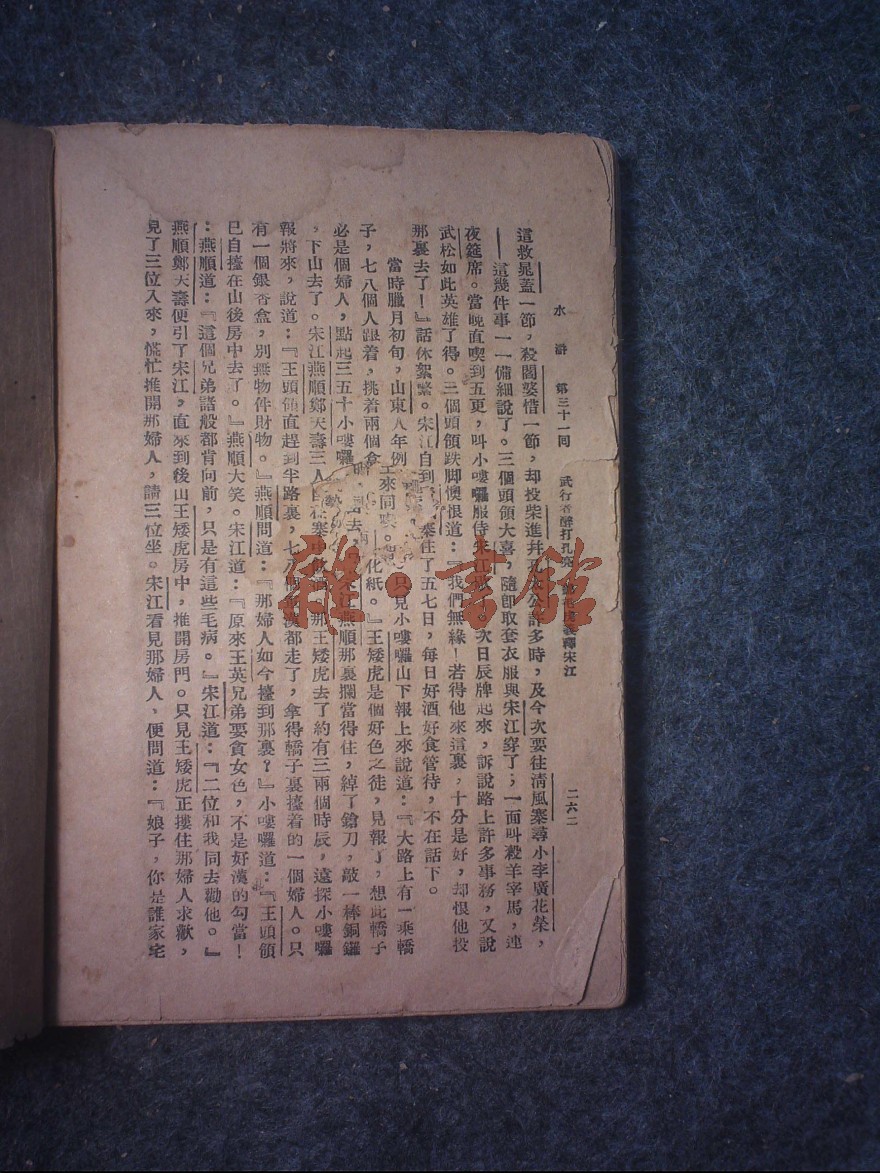 水滸　第三十一回　武行者醉打孔亮　　義釋宋江　二六二
這救晁蓋一節，殺閻婆惜一節，却投柴進并孔太公許多時，及今次要往清風寨尋小李廣花榮，
——這幾件事一一備細說了。三個頭領大喜，隨卽取套衣服與宋江穿了；一面叫殺羊宰馬，連
夜筵席。當晚直喫到五更，叫小嘍囉服侍宋江歇了。次日辰牌起來，訴說路上許多事務，又說
武松如此英雄了得。三個頭領跌脚懊恨道：『我們無緣！若得他來這裏，十分是好，却恨他投
那裏去了！』話休絮繁。宋江自到　寨住了五七日，每日好酒好食管待，不在話下。
當時臘月初旬，山東人年例　只見小嘍囉山下報上來說道：『大路上有一乘轎
子，七八個人跟着，挑着兩個盒　化紙。』王矮虎是個好色之徒，見報了，想此轎子
必是個婦人，點起三五十小嘍囉　宋江燕順那裏攔當得住，綽了鎗刀，敲一棒銅鑼
，下山去了。宋江燕順鄭天壽三人自在寨中飲酒。那王矮虎去了約有三兩個時辰，遠探小嘍囉
報將來，說道：『王頭領直趕到半路裏，七八個軍漢都走了，拿得轎子裏擡着的一個婦人。只
有一個銀香盒，別無物件財物。』燕順問道：『那婦人如今擡到那裏？』小嘍囉道：『王頭領
已自擡在山後房中去了。』燕順大笑。宋江道：『原來王英兄弟要貪女色，不是好漢的勾當！
』燕順道：『這個兄弟諸般都肯向前，只是有這些毛病。』宋江道：『二位和我同去勸他。』
燕順鄭天壽便引了宋江，直來到後山王矮虎房中，推開房門。只見王矮虎正摟住那婦人求歡，
見了三位入來，慌忙推開那婦人，請三位坐。宋江看見那婦人，便問道：『娘子，你是誰家宅
雜·書館